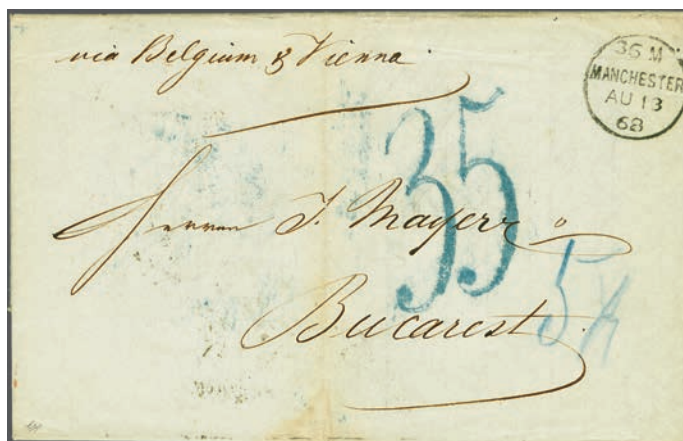 via Belgium & Vienna
36 M
MANCHESTER
AU 13
68
35
Herrn J. Mayerr
5
Bucarest